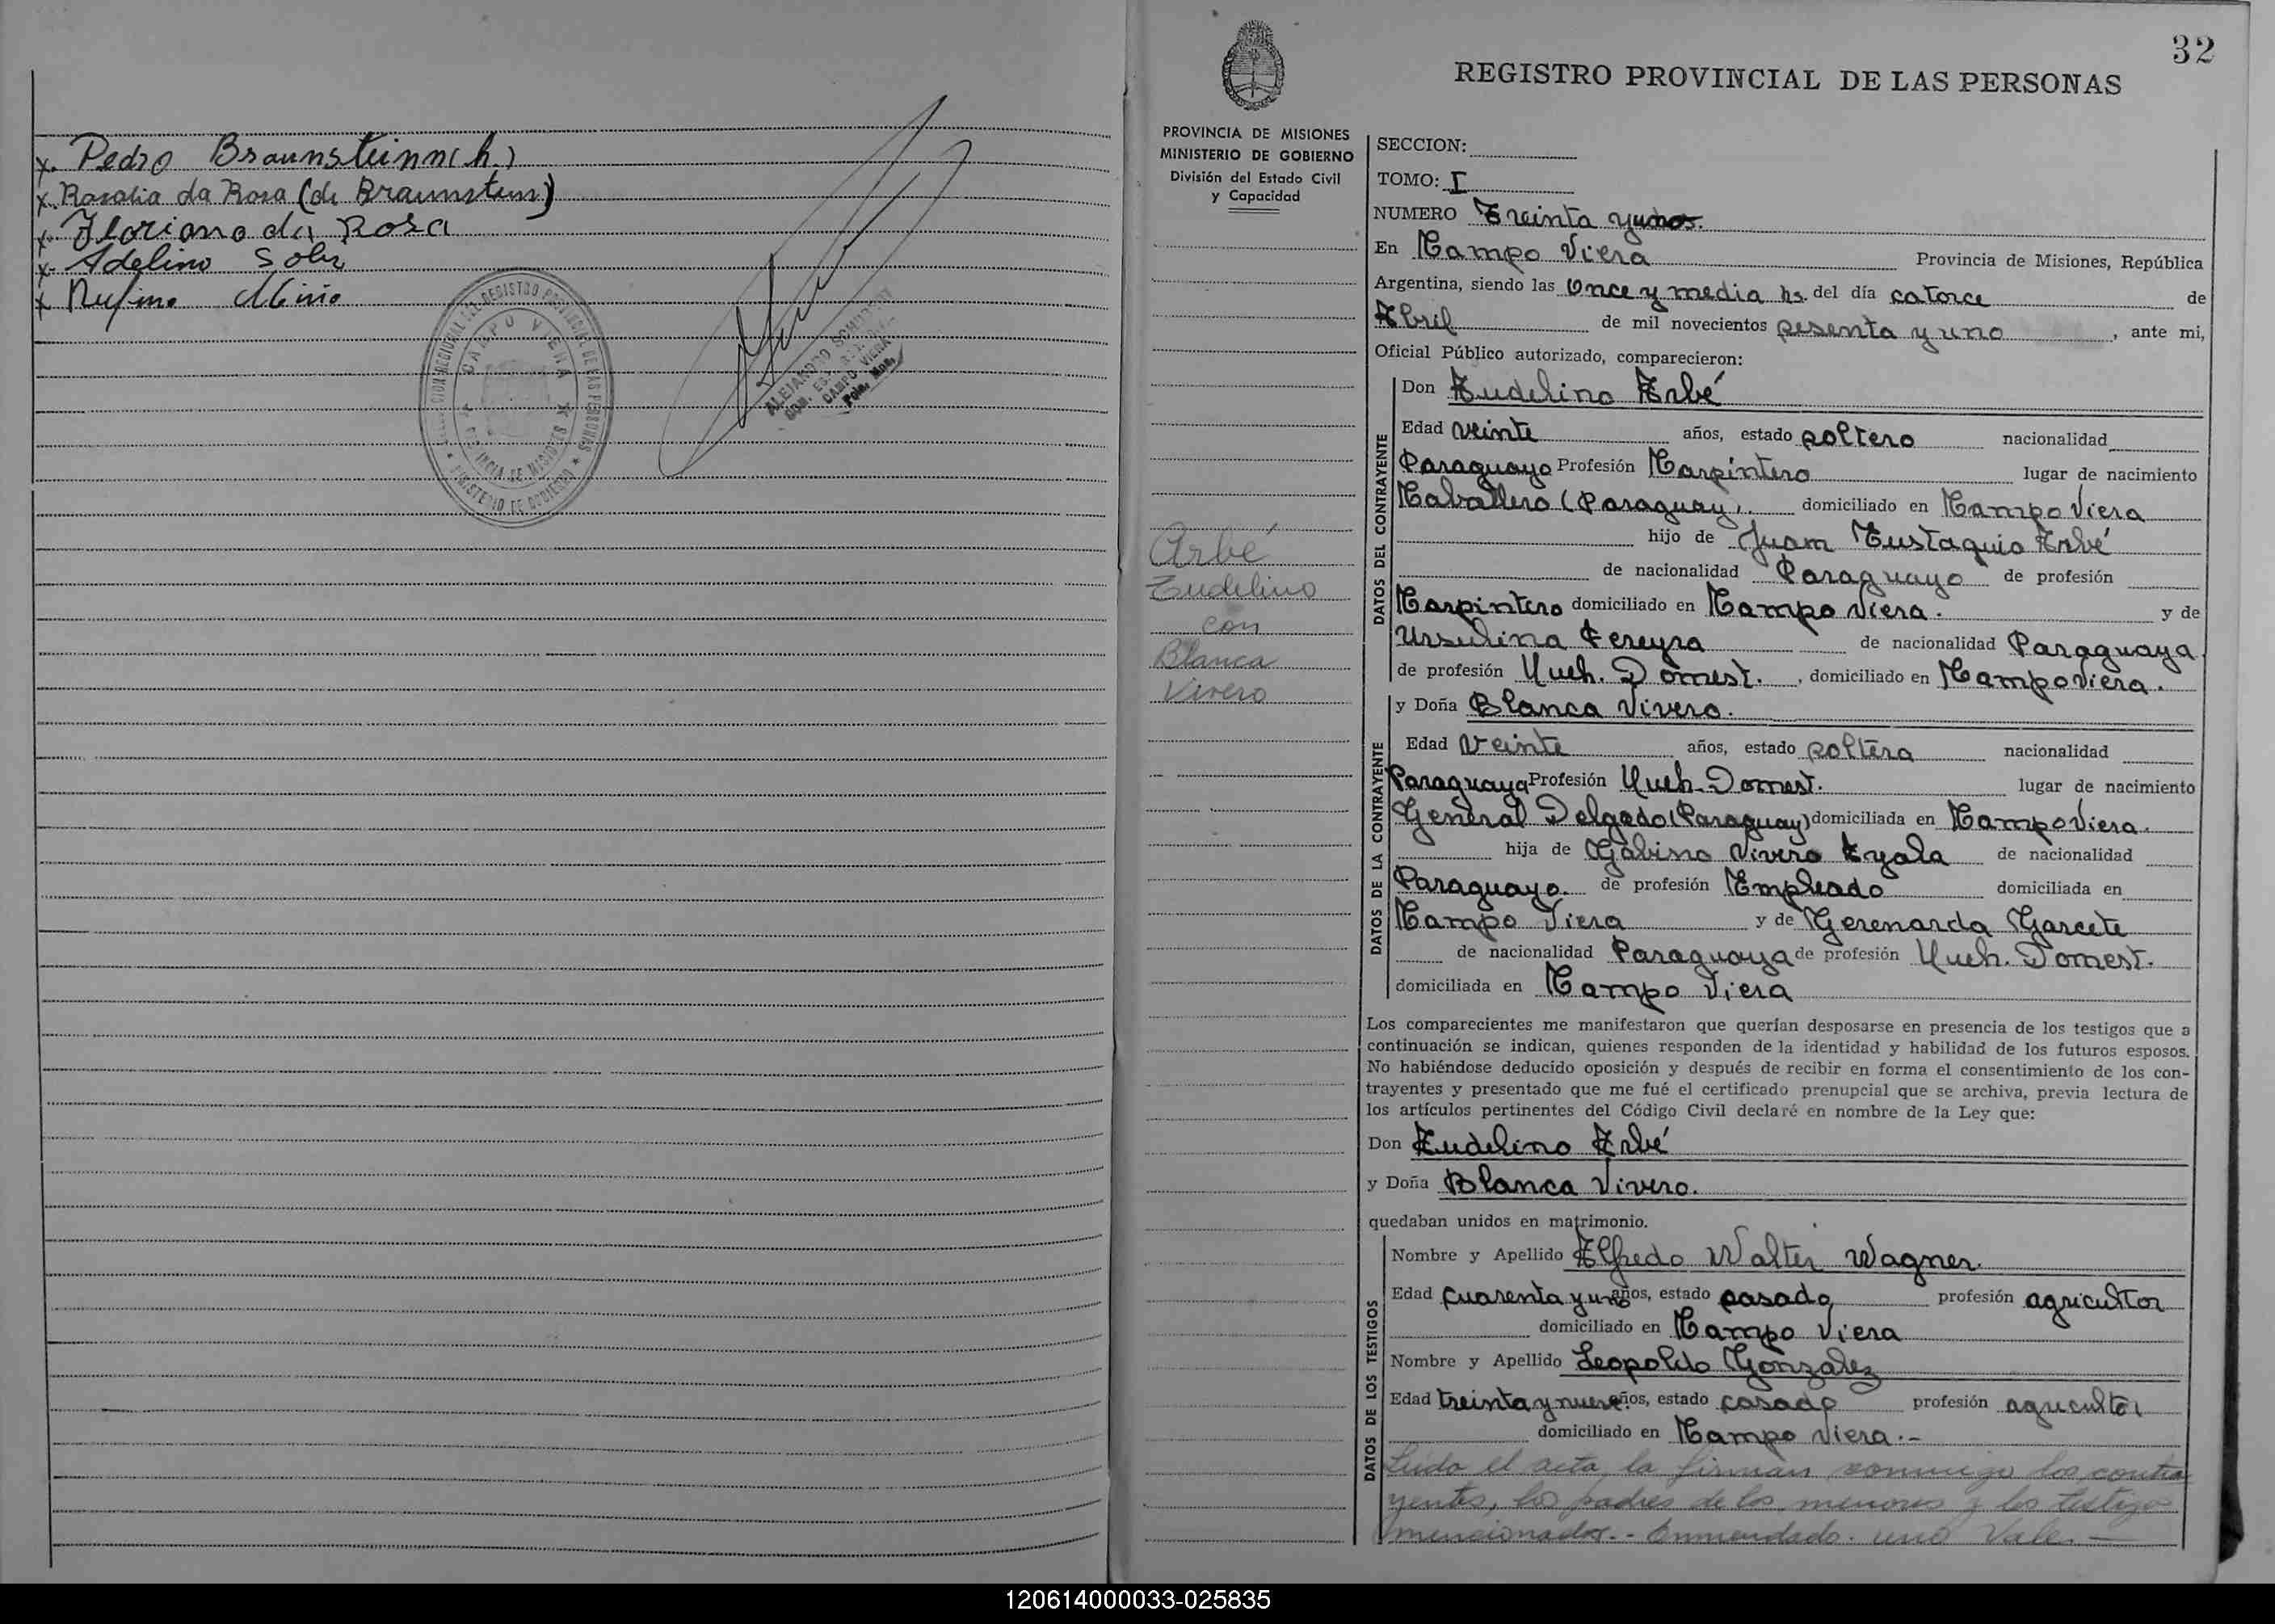 x. Pedro Braunsteinn (h.)
x. Rosalia da Rosa (de Braunstein)
x. Floriano da Rosa
x. Adelino
x Rufino Miño
CAMPO VIERA
MINISTERIO DE GOBIERNO
ALEJANDRO
CAMPO VIERA
Pcia. Mnes.
32
REGISTRO PROVINCIAL DE LAS PERSONAS
PROVINCIA DE MISIONES
MINISTERIO DE GOBIERNO
División del Estado Civil
y Capacidad
Arbé
Eudelino
con
Blanca
Vivero
SECCION:
TOMO: I
NUMERO Treinta y unos.
En Campo Viera Provincia de Misiones, República
Argentina, siendo las Once y media hs. del día catorce de
Abril de mil novecientos sesenta y uno, ante mi,
Oficial Público autorizado, comparecieron:
DATOS DEL CONTRAYENTE
Don Eudelino Arbé
Edad veinte años, estado soltero nacionalidad
Paraguayo Profesión Carpintero lugar de nacimiento
Caballero (Paraguay). domiciliado en Campo Viera
hijo de Juan Eustaquio Arbé
de nacionalidad Paraguayo de profesión
Carpintero domiciliado en Campo Viera. y de
Ursulina Pereyra de nacionalidad Paraguaya
de profesión Queh. Domest., domiciliado en Campo Viera.
y Doña Blanca Vivero.
DATOS DE LA CONTRAYENTE
Edad Veinte años, estado soltera nacionalidad
Paraguaya Profesión Queh. Domest. lugar de nacimiento
General Delgado (Paraguay) domiciliada en Campo Viera.
hija de Gabino Vivero Ayala de nacionalidad
Paraguayo. de profesión Empleado domiciliada en
Campo Viera y de Gerenarda Garcete
de nacionalidad Paraguaya de profesión Queh. Domest.
domiciliada en Campo Viera
Los comparecientes me manifestaron que querían desposarse en presencia de los testigos que a
continuación se indican, quienes responden de la identidad y habilidad de los futuros esposos.
No habiéndose deducido oposición y después de recibir en forma el consentimiento de los con-
trayentes y presentado que me fué el certificado prenupcial que se archiva, previa lectura de
los artículos pertinentes del Código Civil declaré en nombre de la Ley que:
Don Eudelino Arbé
y Doña Blanca Vivero.
quedaban unidos en matrimonio.
DATOS DE LOS TESTIGOS
Nombre y Apellido Alfredo Walter Wagner.
Edad cuarenta y uno años, estado casado profesión agricultor
domiciliado en Campo Viera
Nombre y Apellido Leopoldo Gonzalez
Edad treinta y nueve años, estado casado profesión agricultor
domiciliado en Campo Viera.-
Leída el acta, la firman conmigo los contra
yentes, los padres de los menores y los testigos
mencionados.- Enmendado: uno Vale.-
120614000033-025835